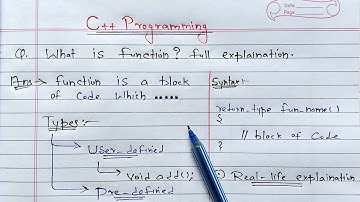 Date
Page
C++ Programming
Q. What is function? full explaination.
Ans → function is a block
of Code which .....
Types:-
User-defined
void add();
Pre-defined
Syntax:-
return_type fun_name()
{
// block of Code
}
Real-life explaination